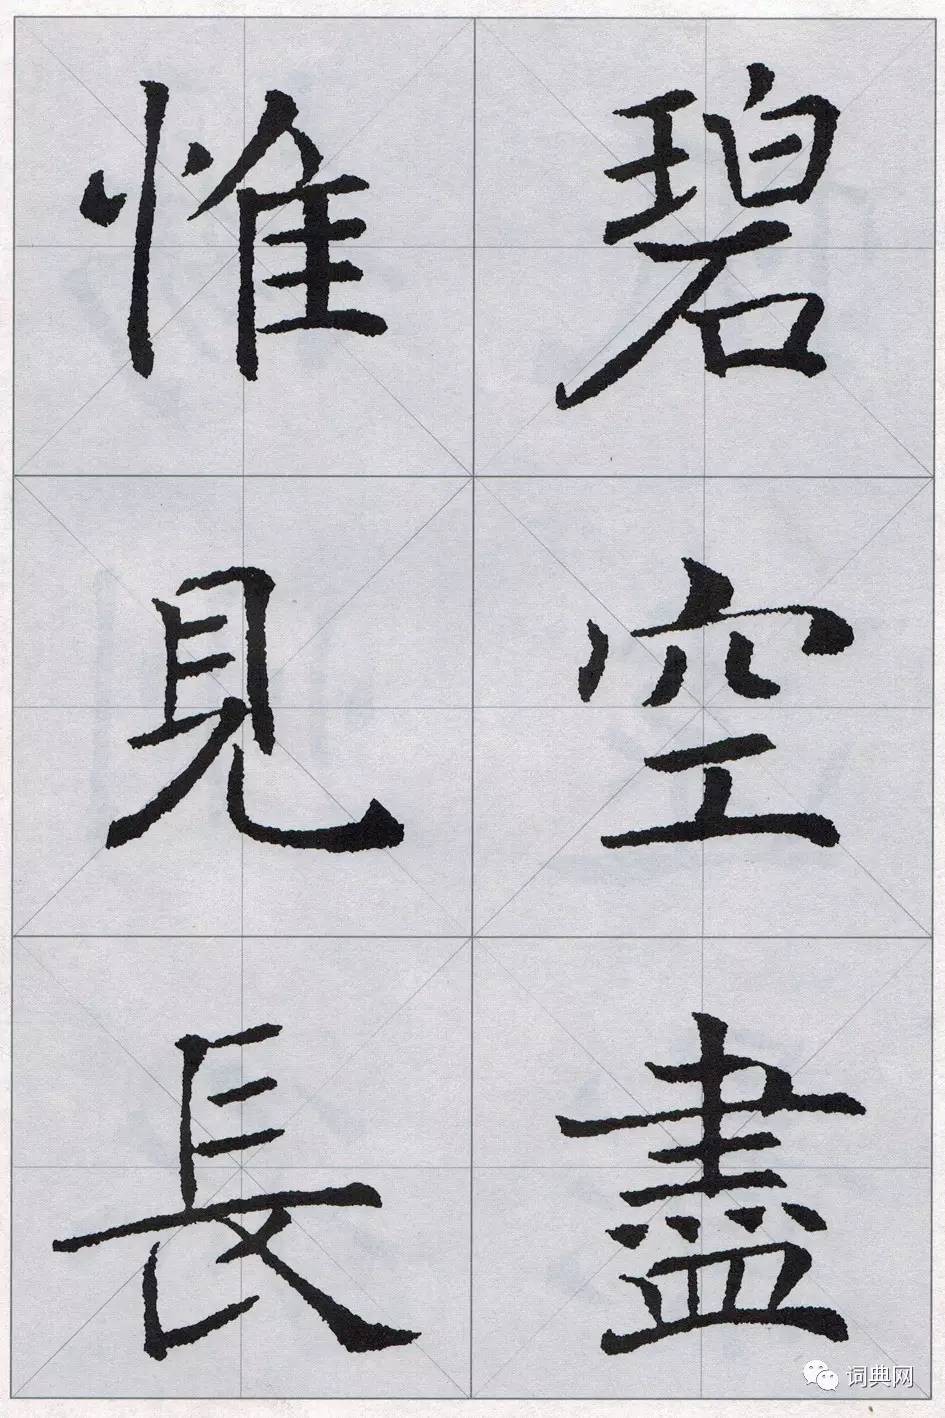 碧空盡
惟見長
词典网